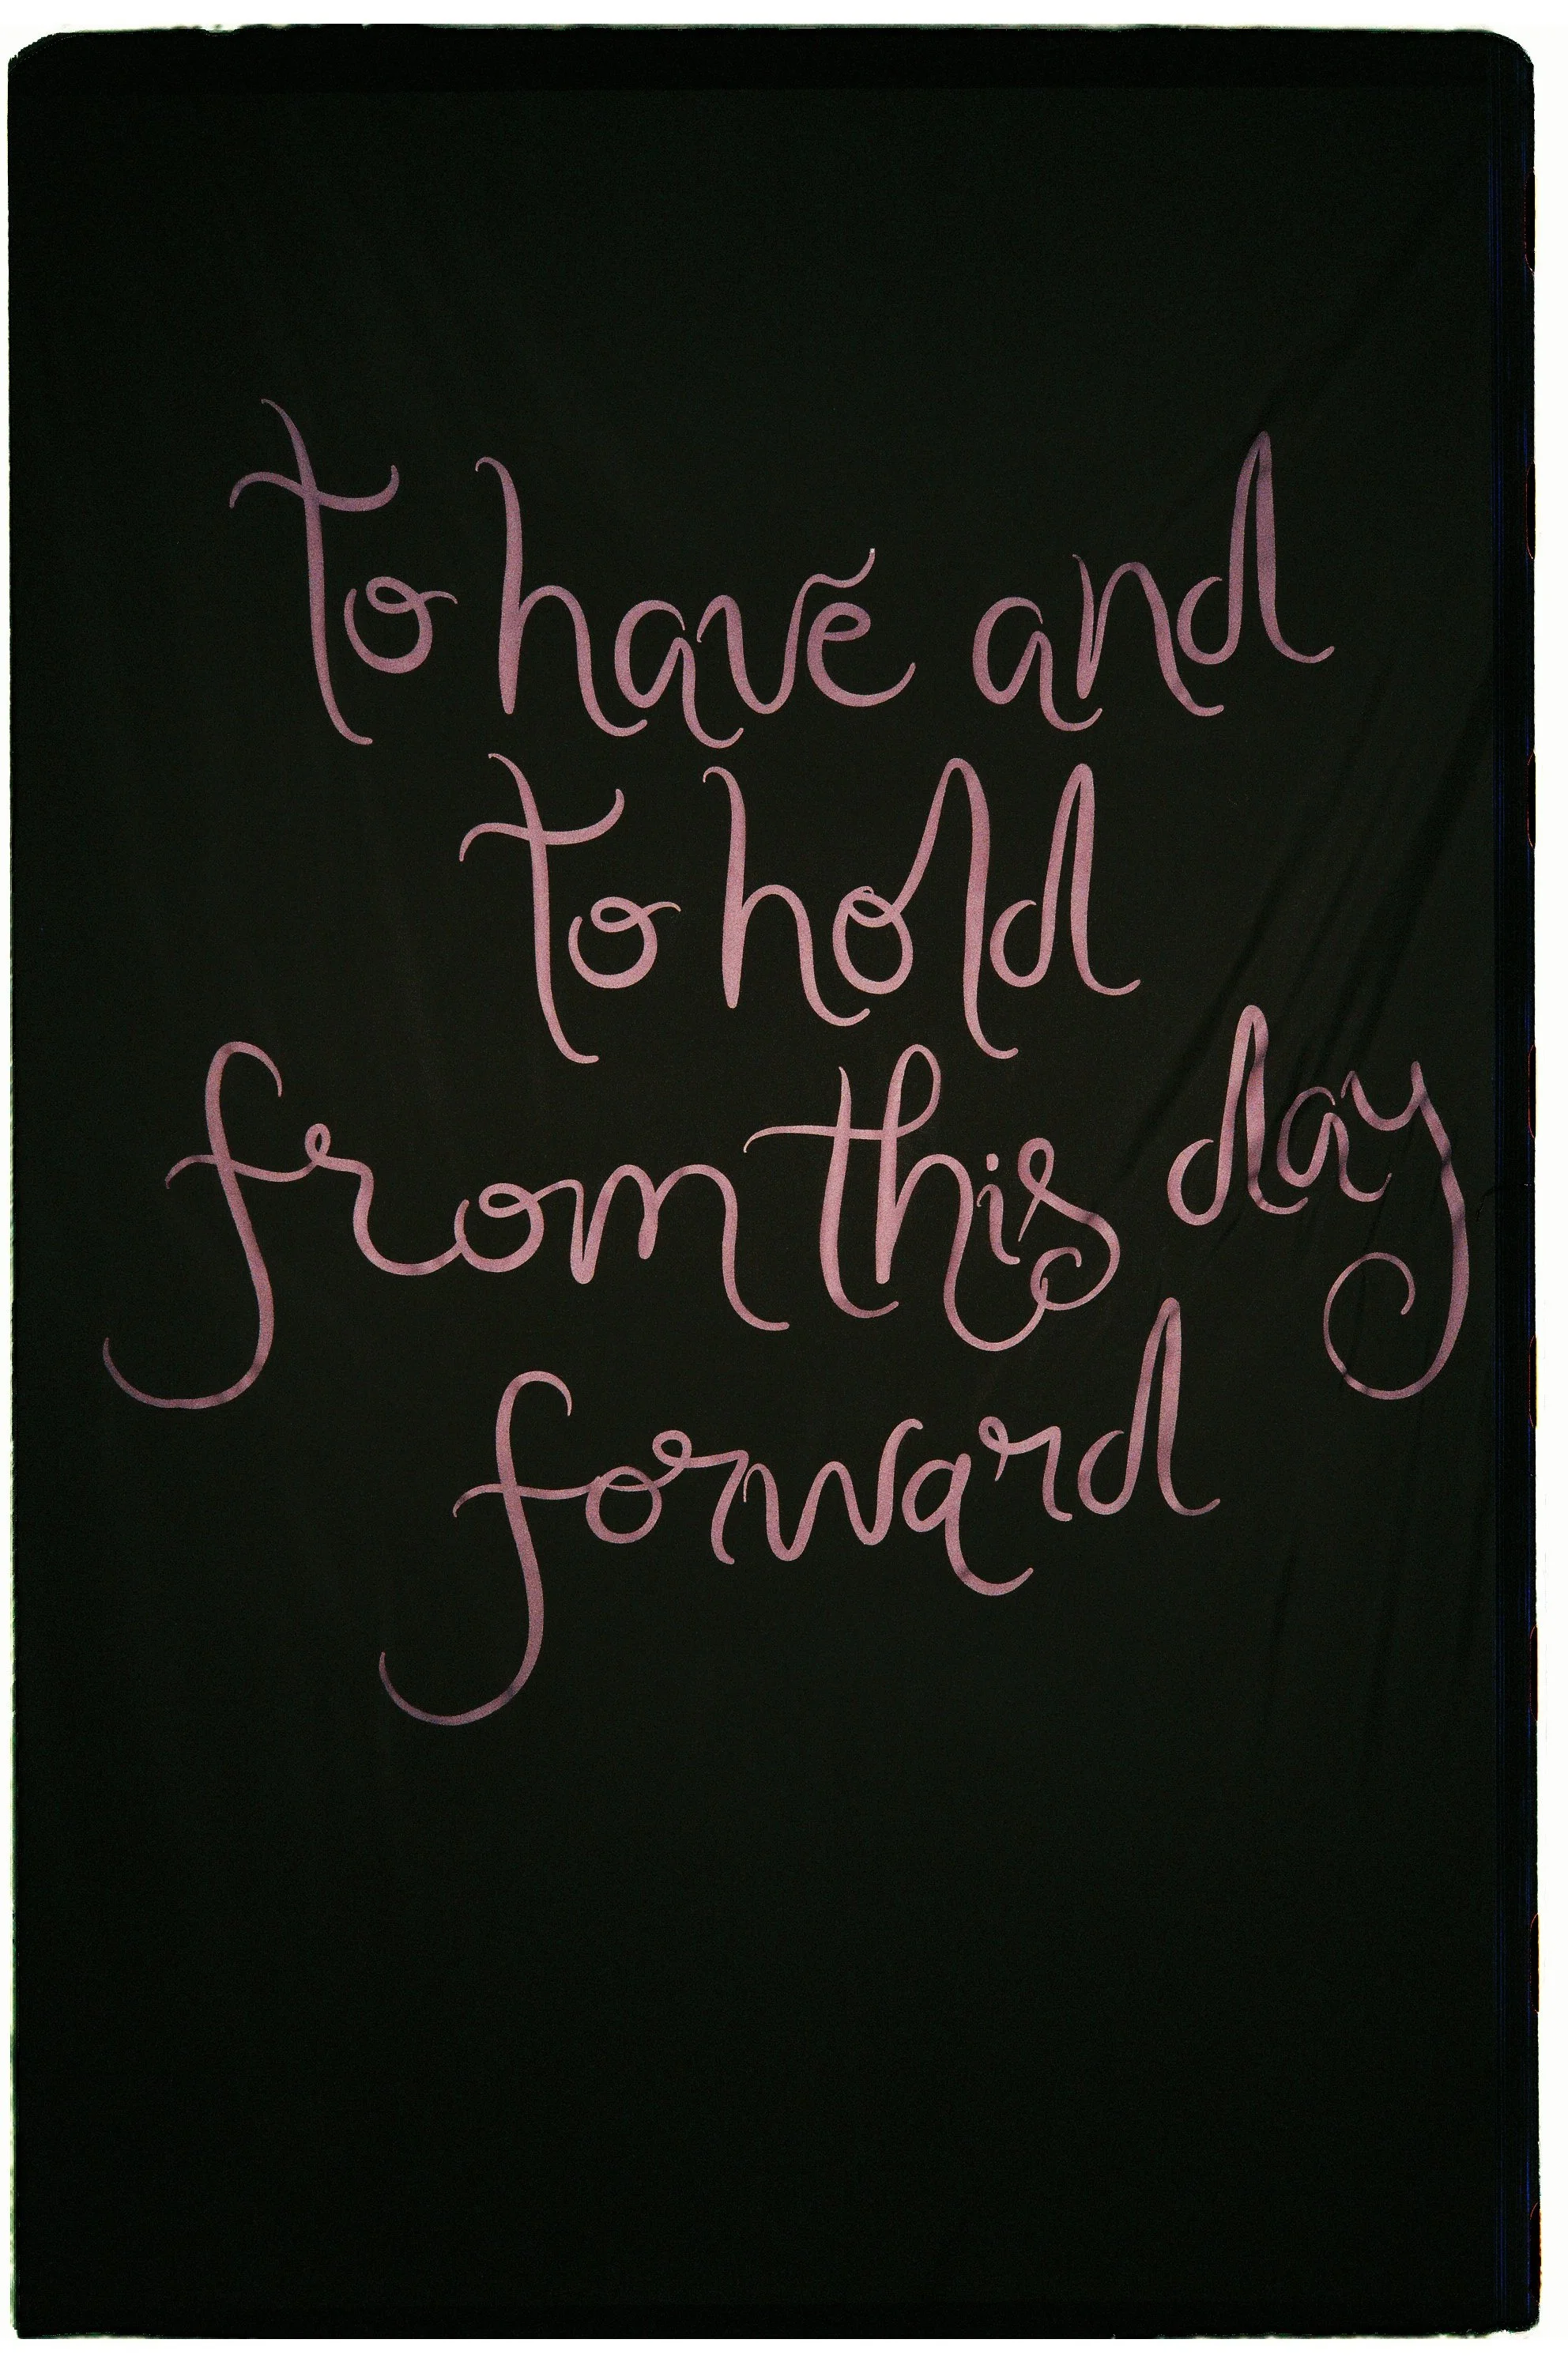 to have and
to hold
from this day
forward